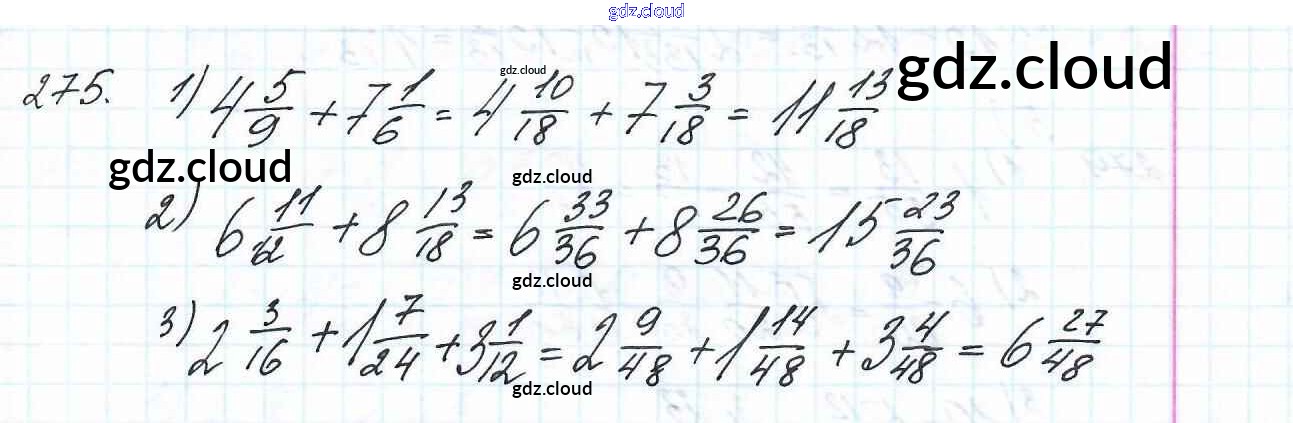 gdz.cloud
275. 1) 4 5/9 + 7 1/6 = 4 10/18 + 7 3/18 = 11 13/18
gdz.cloud
gdz.cloud
gdz.cloud
gdz.cloud
2) 6 11/12 + 8 13/18 = 6 33/36 + 8 26/36 = 15 23/36
gdz.cloud
3) 2 3/16 + 1 7/24 + 3 1/12 = 2 9/48 + 1 14/48 + 3 4/48 = 6 27/48
gdz.cloud